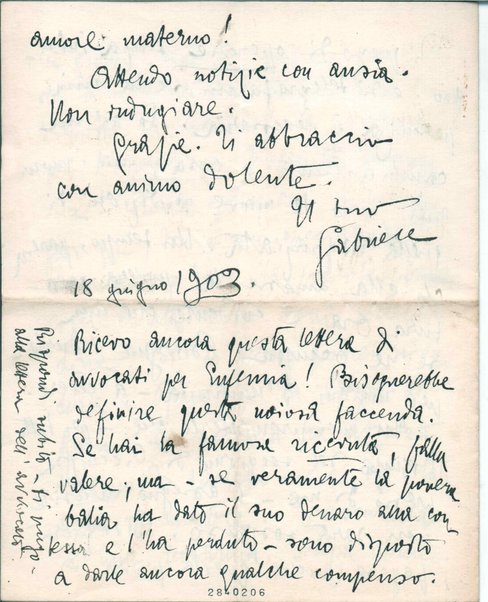 amore materno!
Attendo notizie con ansia.
Non indugiare.
Grazie. Ti abbraccio
con animo dolente.
Il tuo
Gabriele
18 giugno 1903.
Ricevo ancora questa lettera di
avvocati per Eufemia! Bisognerebbe
definire questa noiosa faccenda.
Se hai la famosa ricevuta, falla
valere; ma - se veramente la povera
balia ha dato il suo denaro alla con-
tessa e l'ha perduto - sono disposto
a darle ancora qualche compenso.
Rispondi subito - ti prego -
alla lettera dell'avvocato
2840206